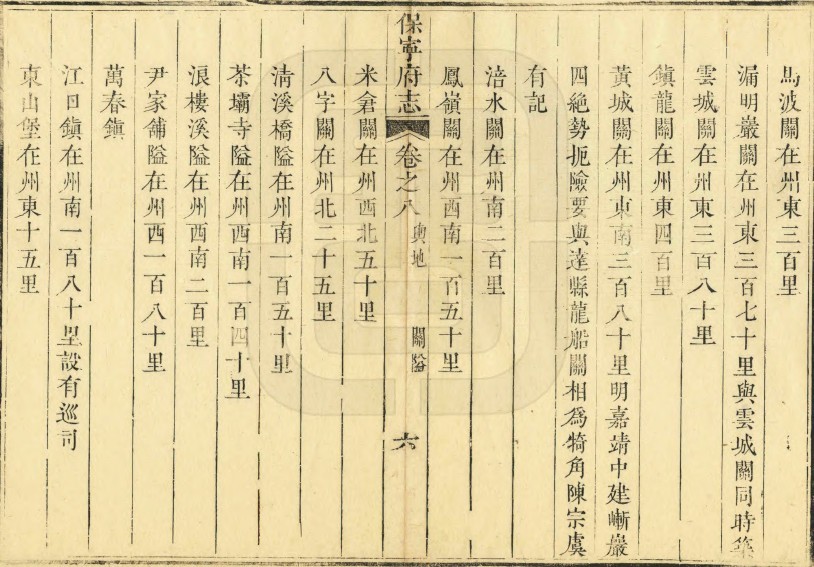 馬波關在州東三百里
漏明巖關在州東三百七十里與雲城關同時築
雲城關在州東三百八十里
鎮龍關在州東四百里
黃城關在州東南三百八十里明嘉靖中建嶄巖
四絕勢扼險要與達縣龍船關相為犄角陳宗虞
有記
涪水關在州南二百里
鳳嶺關在州西南一百五十里
保寧府志 卷之八 輿地 關隘 六
米倉關在州西北五十里
八字關在州北二十五里
清溪橋隘在州南一百五十里
茶壩寺隘在州西南一百四十里
浪樓溪隘在州西南二百里
尹家舖隘在州西一百八十里
萬春鎮
江口鎮在州南一百八十里設有巡司
東山堡在州東十五里